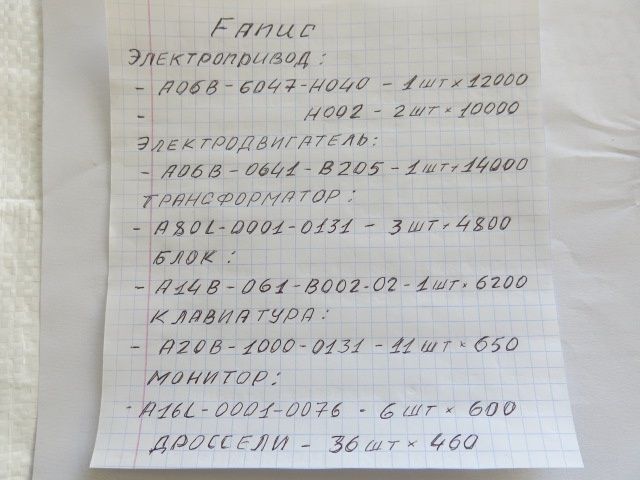 FАПИС
ЭЛЕКТРОПРИВОД:
- A06B-6047-H040 - 1шт × 12000
- H002 - 2шт × 10000
ЭЛЕКТРОДВИГАТЕЛЬ:
- A06B-0641-B205 - 1шт × 14000
ТРАНСФОРМАТОР:
- A80L-0001-0131 - 3шт × 4800
БЛОК:
- A14B-061-B002-02-1шт × 6200
КЛАВИАТУРА:
- A20B-1000-0131 - 11шт × 650
МОНИТОР:
- A16L-0001-0076 - 6шт × 600
ДРОССЕЛИ - 36шт × 460